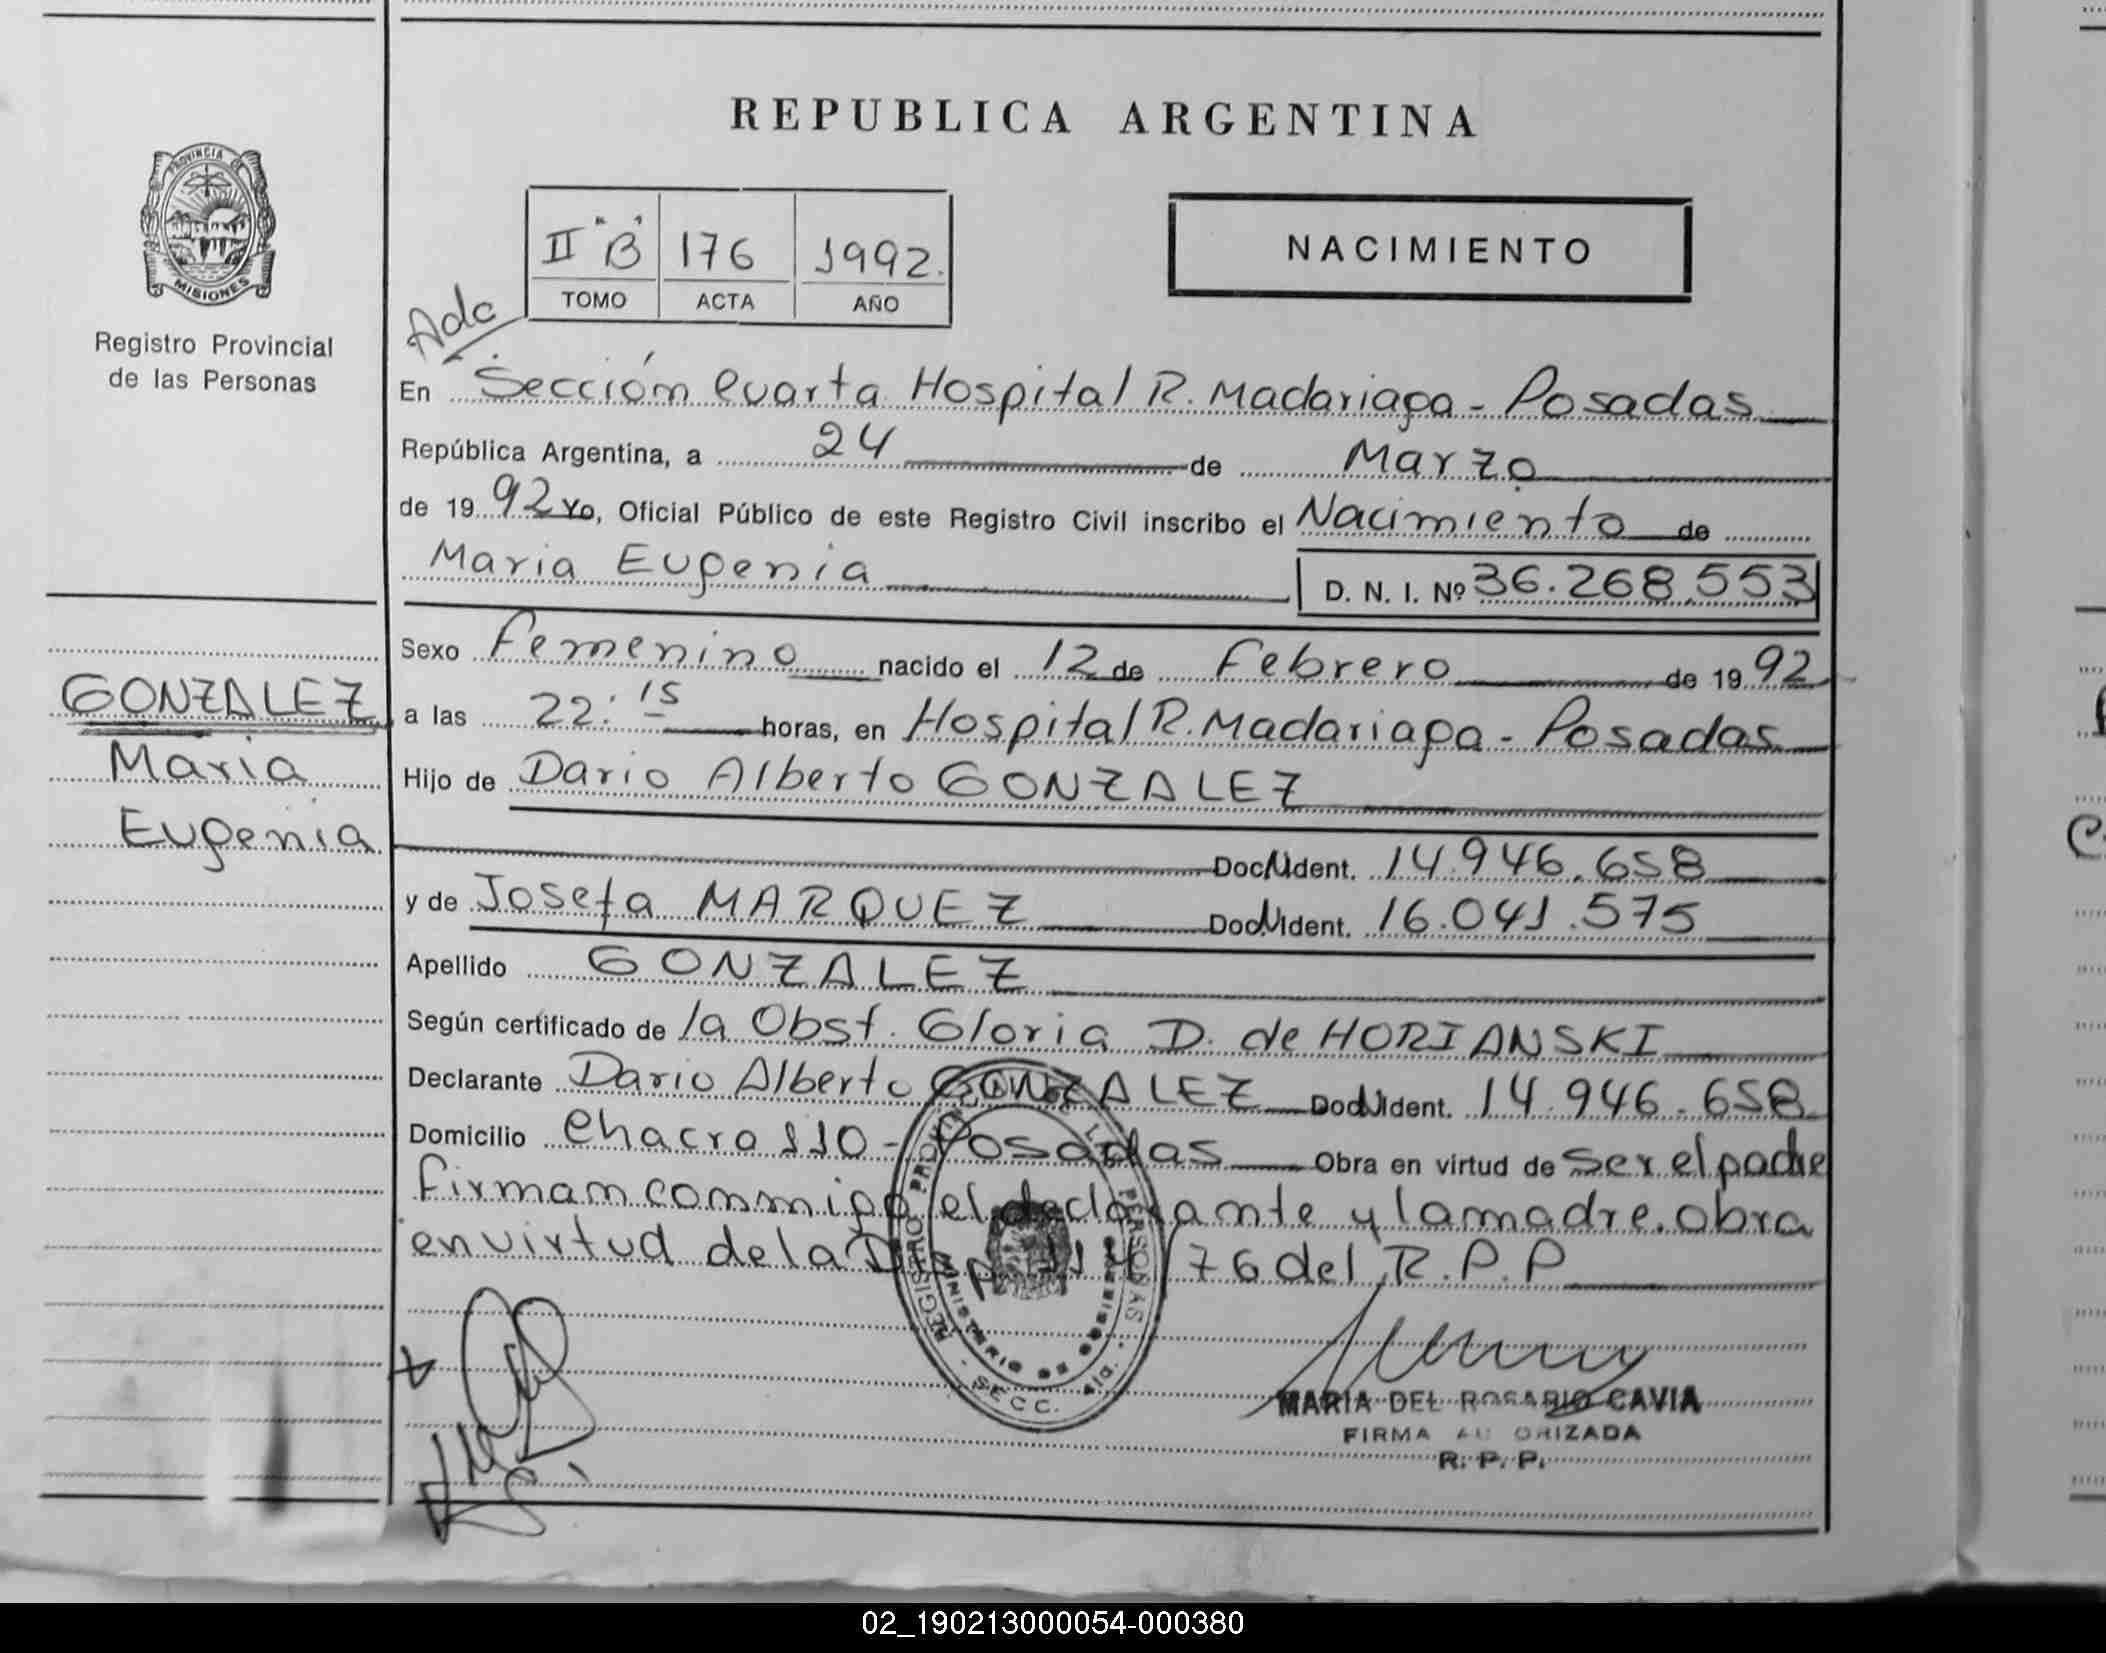 REPUBLICA ARGENTINA
PROVINCIA DE
MISIONES
Registro Provincial
de las Personas
II "B" 176 1992.
TOMO ACTA AÑO
NACIMIENTO
Adc
En Sección Cuarta Hospital R. Madariaga - Posadas
República Argentina, a 24 de Marzo
de 1992 Yo, Oficial Público de este Registro Civil inscribo el Nacimiento de
Maria Eugenia D. N. I. Nº 36.268.553
Sexo Femenino nacido el 12 de Febrero de 1992
GONZALEZ
Maria
Eugenia
a las 22:15 horas, en Hospital R. Madariaga - Posadas
Hijo de Dario Alberto GONZALEZ
Doc. Ident. 14.946.658
y de Josefa MARQUEZ Doc. Ident. 16.041.575
Apellido GONZALEZ
Según certificado de la Obst. Gloria D. de HORIANSKI
Declarante Dario Alberto GONZALEZ Doc. Ident. 14.946.658
Domicilio Chacra 110 - Posadas Obra en virtud de Ser el padre
firman conmigo el declarante y la madre. obra
en virtud de la 114/76 del R.P.P
REGISTRO PROVINCIAL DE LAS PERSONAS
MINISTERIO DE GOBIERNO
SECC. 4ta.
MARIA DEL ROSARIO CAVIA
FIRMA AUTORIZADA
R. P. P.
02_190213000054-000380